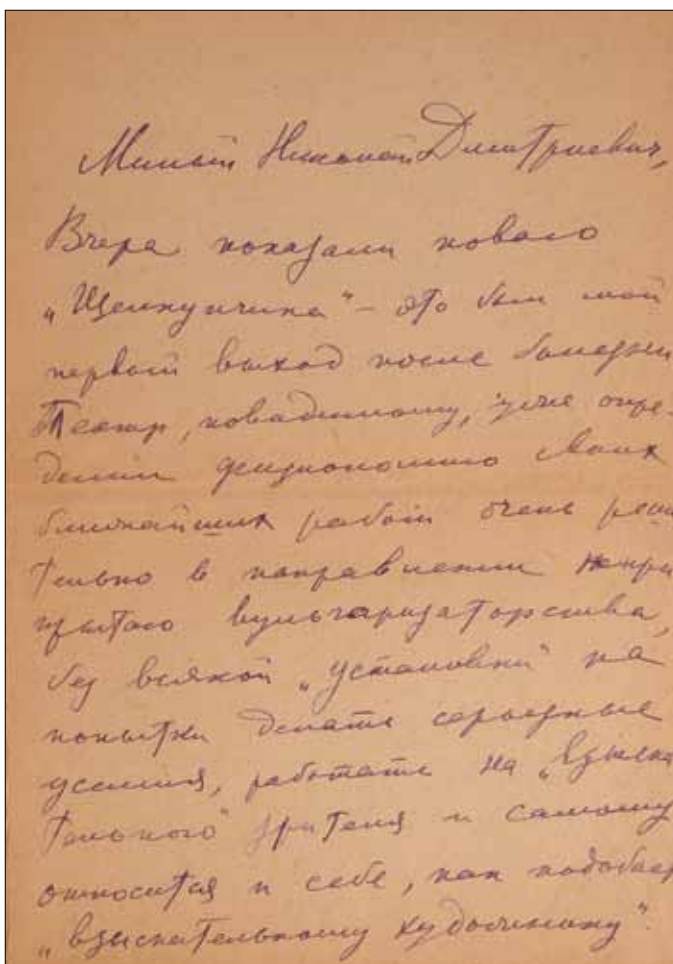 Милый Николай Дмитриевич,
Вчера показали нового
„Щелкунчика“ – это был мой
первый выход после болезни
Театр, повидимому, уже опре-
делил физиономию своих
ближайших работ очень реши
тельно в направлении непри
крытого вульгаризаторства,
без всякой „установки“ на
попытки делать серьезные
усилия, работать на „взыска
тельного“ зрителя и самому
относится к себе, как подобает
„взыскательному художнику“.